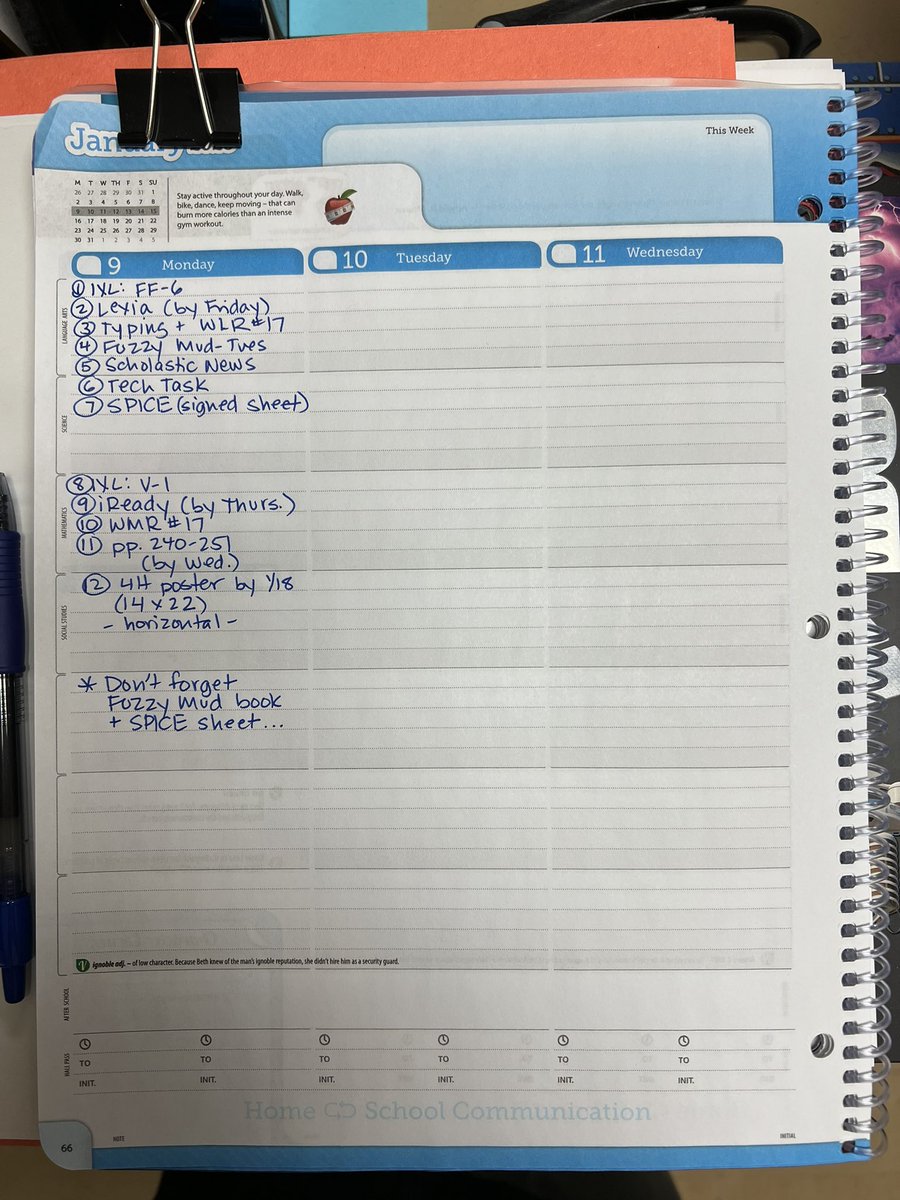 January
This Week
M T W TH F S SU
26 27 28 29 30 31 1
2 3 4 5 6 7 8
9 10 11 12 13 14 15
16 17 18 19 20 21 22
23 24 25 26 27 28 29
30 31 1 2 3 4 5
Stay active throughout your day. Walk,
bike, dance, keep moving – that can
burn more calories than an intense
gym workout.
9 Monday
10 Tuesday
11 Wednesday
LANGUAGE ARTS
① IXL: FF-6
② Lexia (by Friday)
③ Typing + WLR #17
④ Fuzzy Mud-Tues
⑤ Scholastic News
SCIENCE
⑥ Tech Task
⑦ SPICE (signed sheet)
MATHEMATICS
⑧ IXL: V-1
⑨ iReady (by Thurs.)
⑩ WMR #17
⑪ pp. 240-251
(by Wed.)
SOCIAL STUDIES
⑫ 4H poster by 1/18
(14 x 22)
- horizontal -
* Don't forget
Fuzzy Mud book
+ SPICE sheet...
ignoble adj. – of low character. Because Beth knew of the man's ignoble reputation, she didn't hire him as a security guard.
AFTER SCHOOL
HALL PASS
TO TO TO TO TO TO
INIT. INIT. INIT. INIT. INIT. INIT.
Home School Communication
66
NOTE
INITIAL